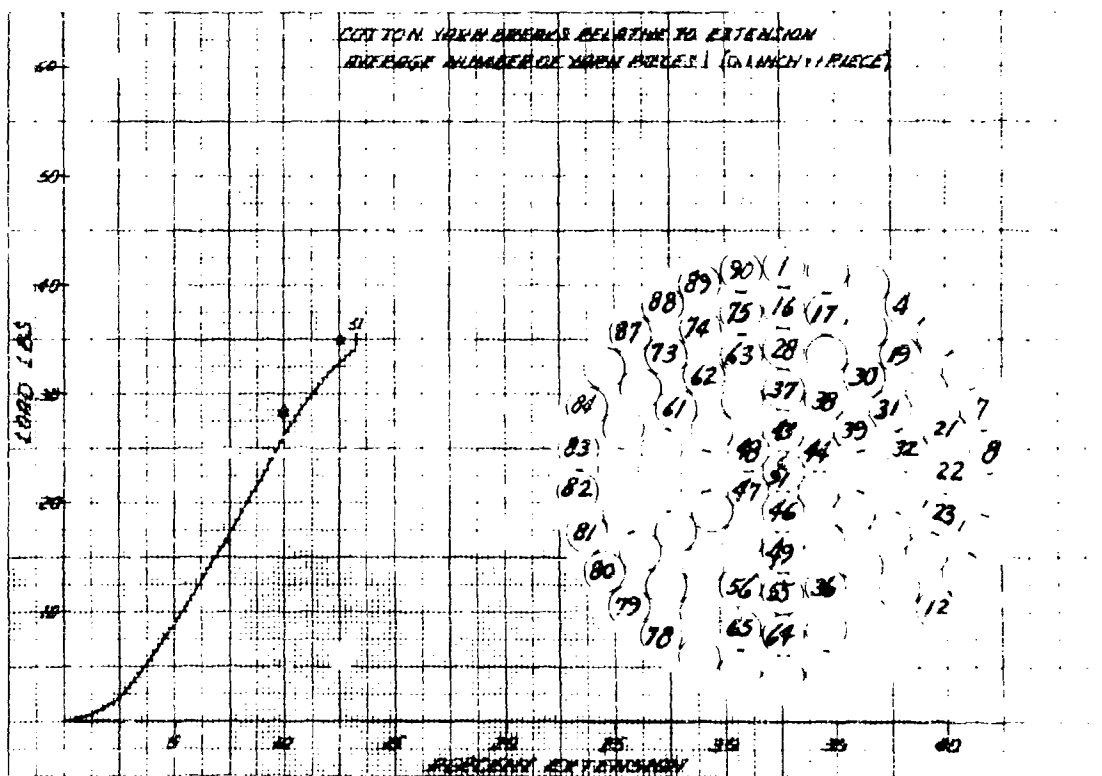 COTTON YARN BREAKS RELATIVE TO EXTENSION
AVERAGE NUMBER OF YARN PIECES 1 (0.1 INCH = 1 PIECE)
60
50
40
30
20
10
LOAD LBS
51
5
10
15
20
25
30
35
40
PERCENT EXTENSION
90 1
89
88 75 16 17 4
87 74
73 63 28 19
62 30
37 38
84 61 31 7
43 39 21
83 48 44 32 8
51 22
82 47
46 23
81
49
80
56 55 36
79 12
78 65 64